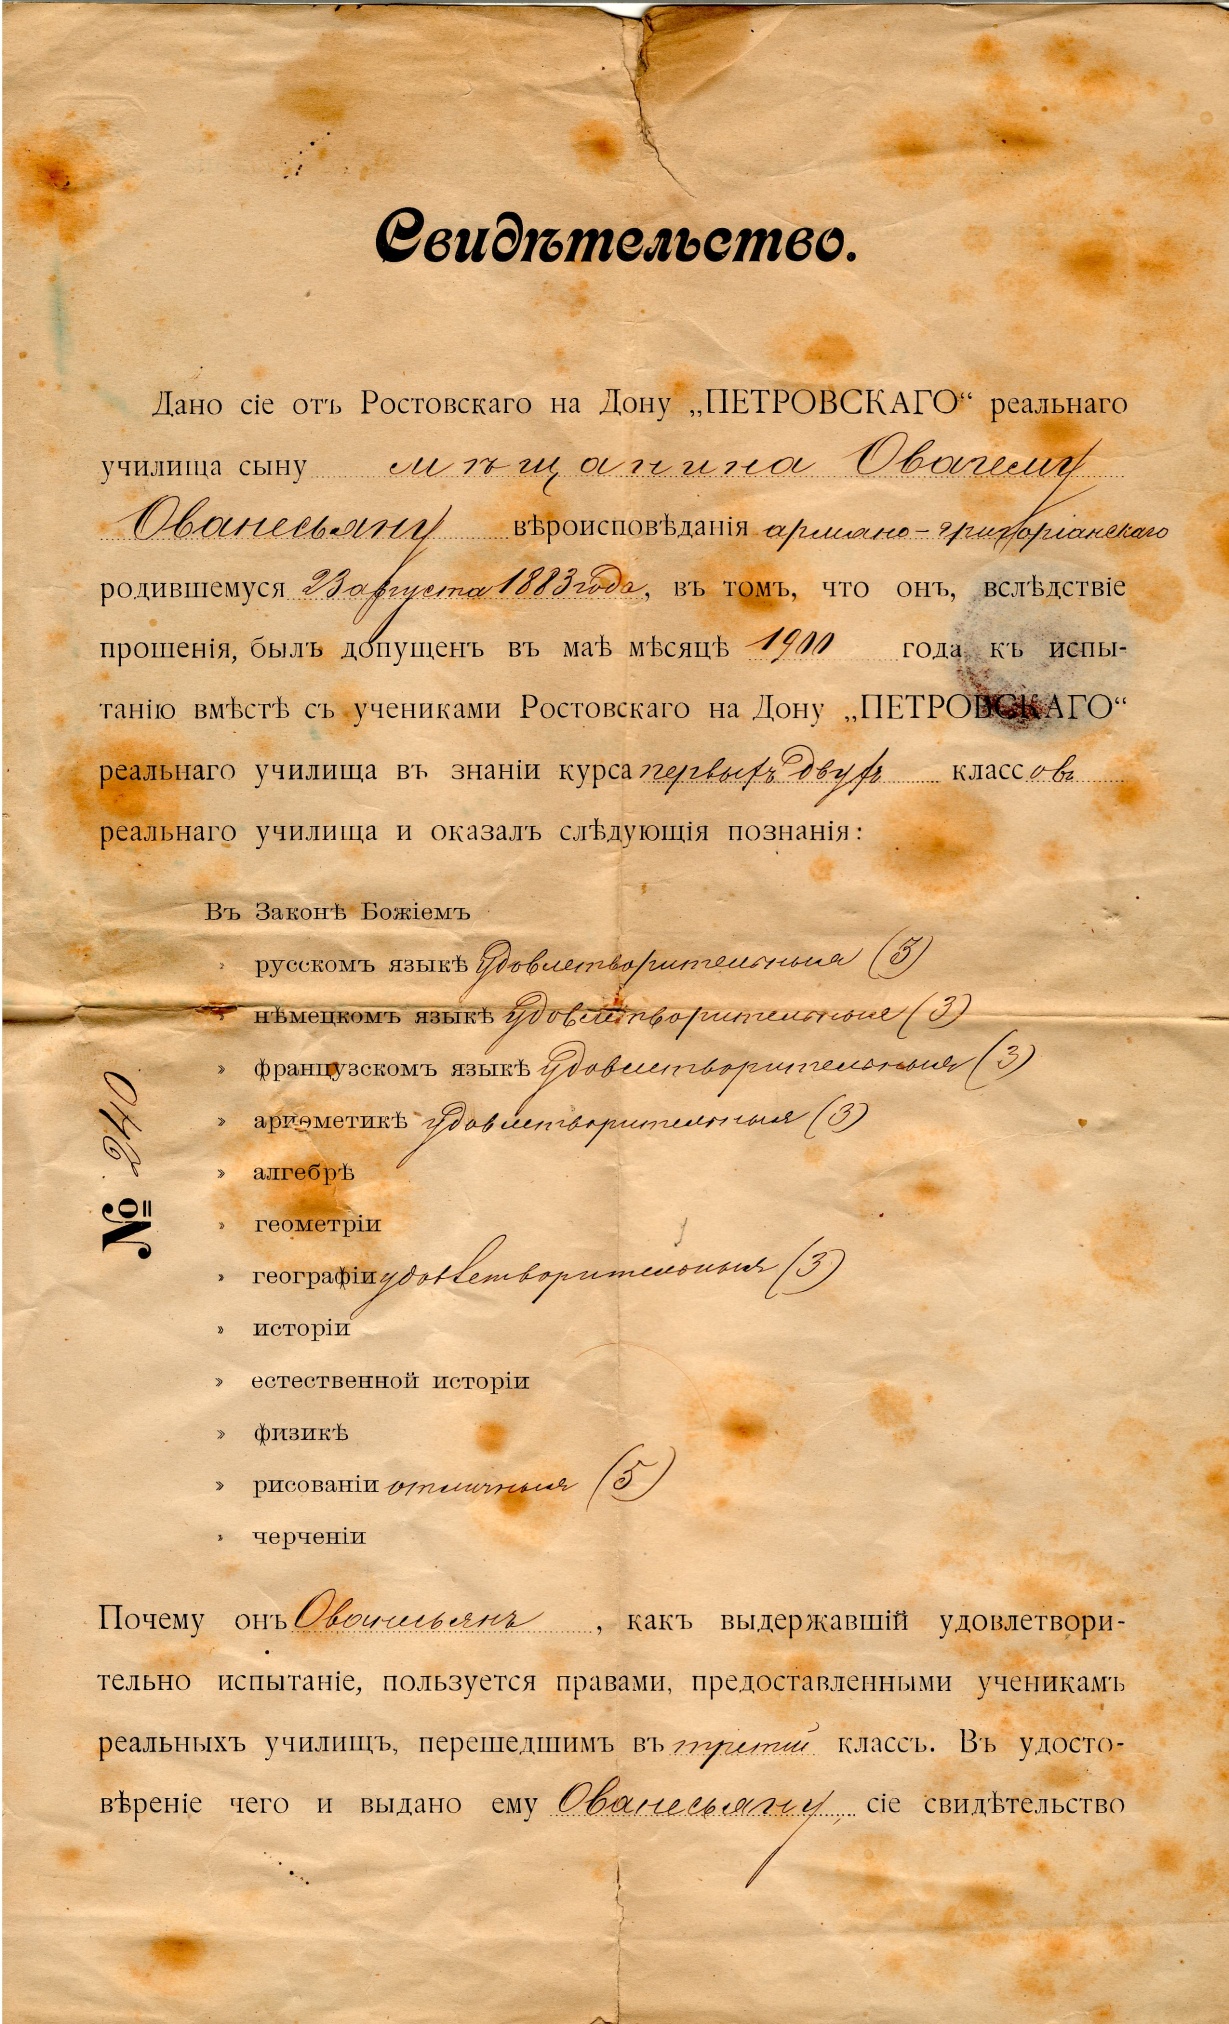 Свидѣтельство.
Дано сіе отъ Ростовскаго на Дону „ПЕТРОВСКАГО“ реальнаго
училища сыну мѣщанина Овагему
Ованесьяну вѣроисповѣданія армяно-григоріанскаго
родившемуся 23 августа 1883 года, въ томъ, что онъ, вслѣдствіе
прошенія, былъ допущенъ въ маѣ мѣсяцѣ 1900 года къ испы-
танію вмѣстѣ съ учениками Ростовскаго на Дону „ПЕТРОВСКАГО“
реальнаго училища въ знаніи курса первыхъ двухъ классовъ
реальнаго училища и оказалъ слѣдующія познанія:
Въ Законѣ Божіемъ
» русскомъ языкѣ удовлетворительныя (3)
» нѣмецкомъ языкѣ удовлетворительныя (3)
» французскомъ языкѣ удовлетворительныя (3)
» ариѳметикѣ удовлетворительныя (3)
» алгебрѣ
» геометріи
» географіи удовлетворительныя (3)
» исторіи
» естественной исторіи
» физикѣ
» рисованіи отличныя (5)
» черченіи
№ 240
Почему онъ Ованесьянъ, какъ выдержавшій удовлетвори-
тельно испытаніе, пользуется правами, предоставленными ученикамъ
реальныхъ училищъ, перешедшимъ въ третій классъ. Въ удосто-
вѣреніе чего и выдано ему Ованесьяну, сіе свидѣтельство